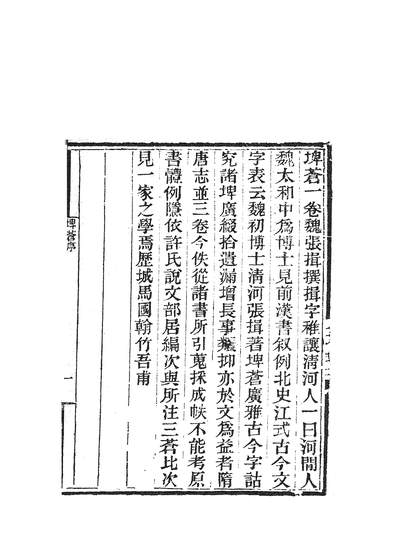 埤蒼一卷魏張揖撰揖字稚讓淸河人一曰河閒人
魏太和中爲博士見前漢書叙例北史江式古今文
字表云魏初博士淸河張揖著埤蒼廣雅古今字詁
究諸埤廣綴拾遺漏增長事類抑亦於文爲益者隋
唐志並三卷今佚從諸書所引蒐採成帙不能考原
書體例隱依許氏說文部居編次與所注三蒼比次
見一家之學焉歷城馬國翰竹吾甫
埤蒼序
一